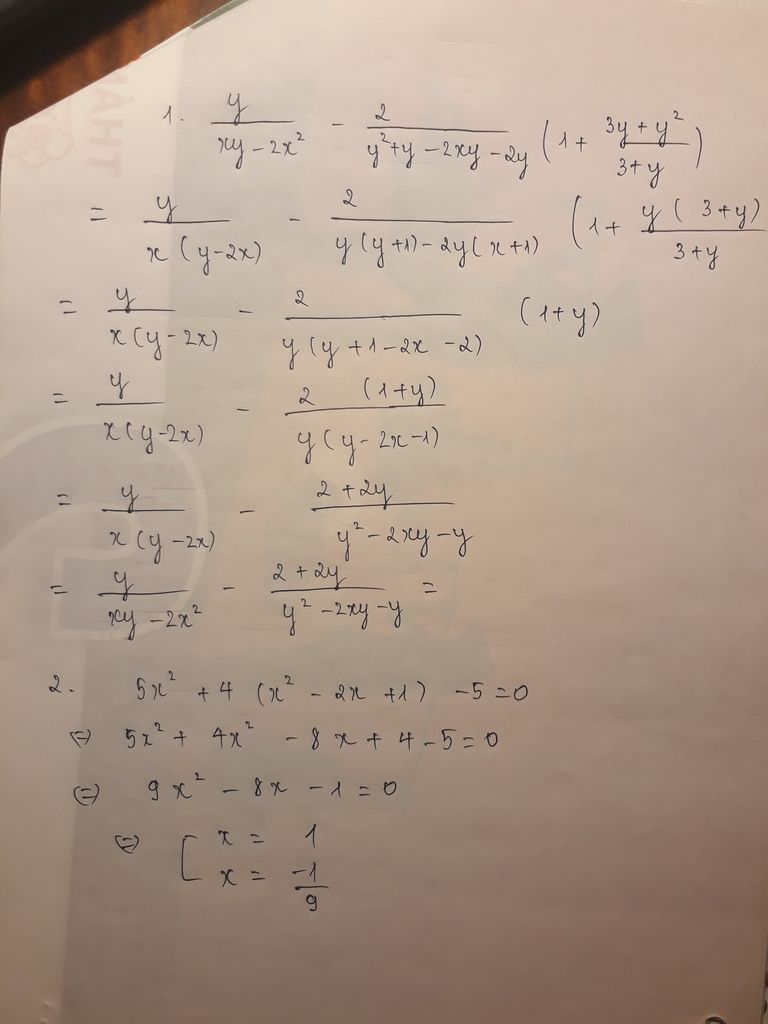 1. y/(xy - 2x²) - 2/(y² + y - 2xy - 2y) (1 + (3y + y²)/(3 + y))
= y/(x(y - 2x)) - 2/(y(y+1) - 2y(x+1)) (1 + y(3+y)/(3+y)
= y/(x(y - 2x)) - 2/(y(y + 1 - 2x - 2)) (1+y)
= y/(x(y - 2x)) - 2(1+y)/(y(y - 2x - 1))
= y/(x(y - 2x)) - (2 + 2y)/(y² - 2xy - y)
= y/(xy - 2x²) - (2 + 2y)/(y² - 2xy - y) =
2. 5x² + 4(x² - 2x + 1) - 5 = 0
⇔ 5x² + 4x² - 8x + 4 - 5 = 0
⇔ 9x² - 8x - 1 = 0
⇔ [ x = 1
x = -1/9